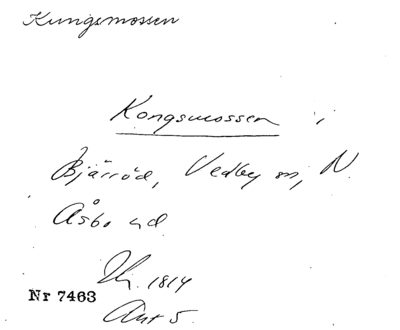 Kungsmossen
Kongsmossen i
Bjärröd, Vedby sn, N.
Åsbo hd
1814
Nr 7463
Akt 5.